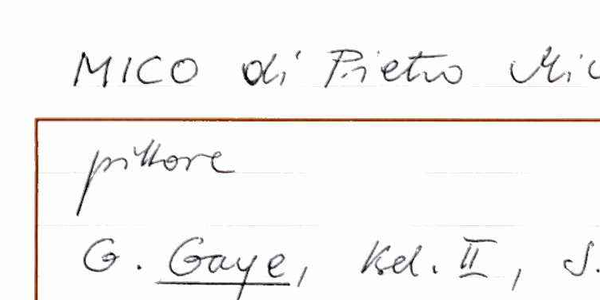 MICO di Pietro
pittore
G. Gaye, Kel. II, S.